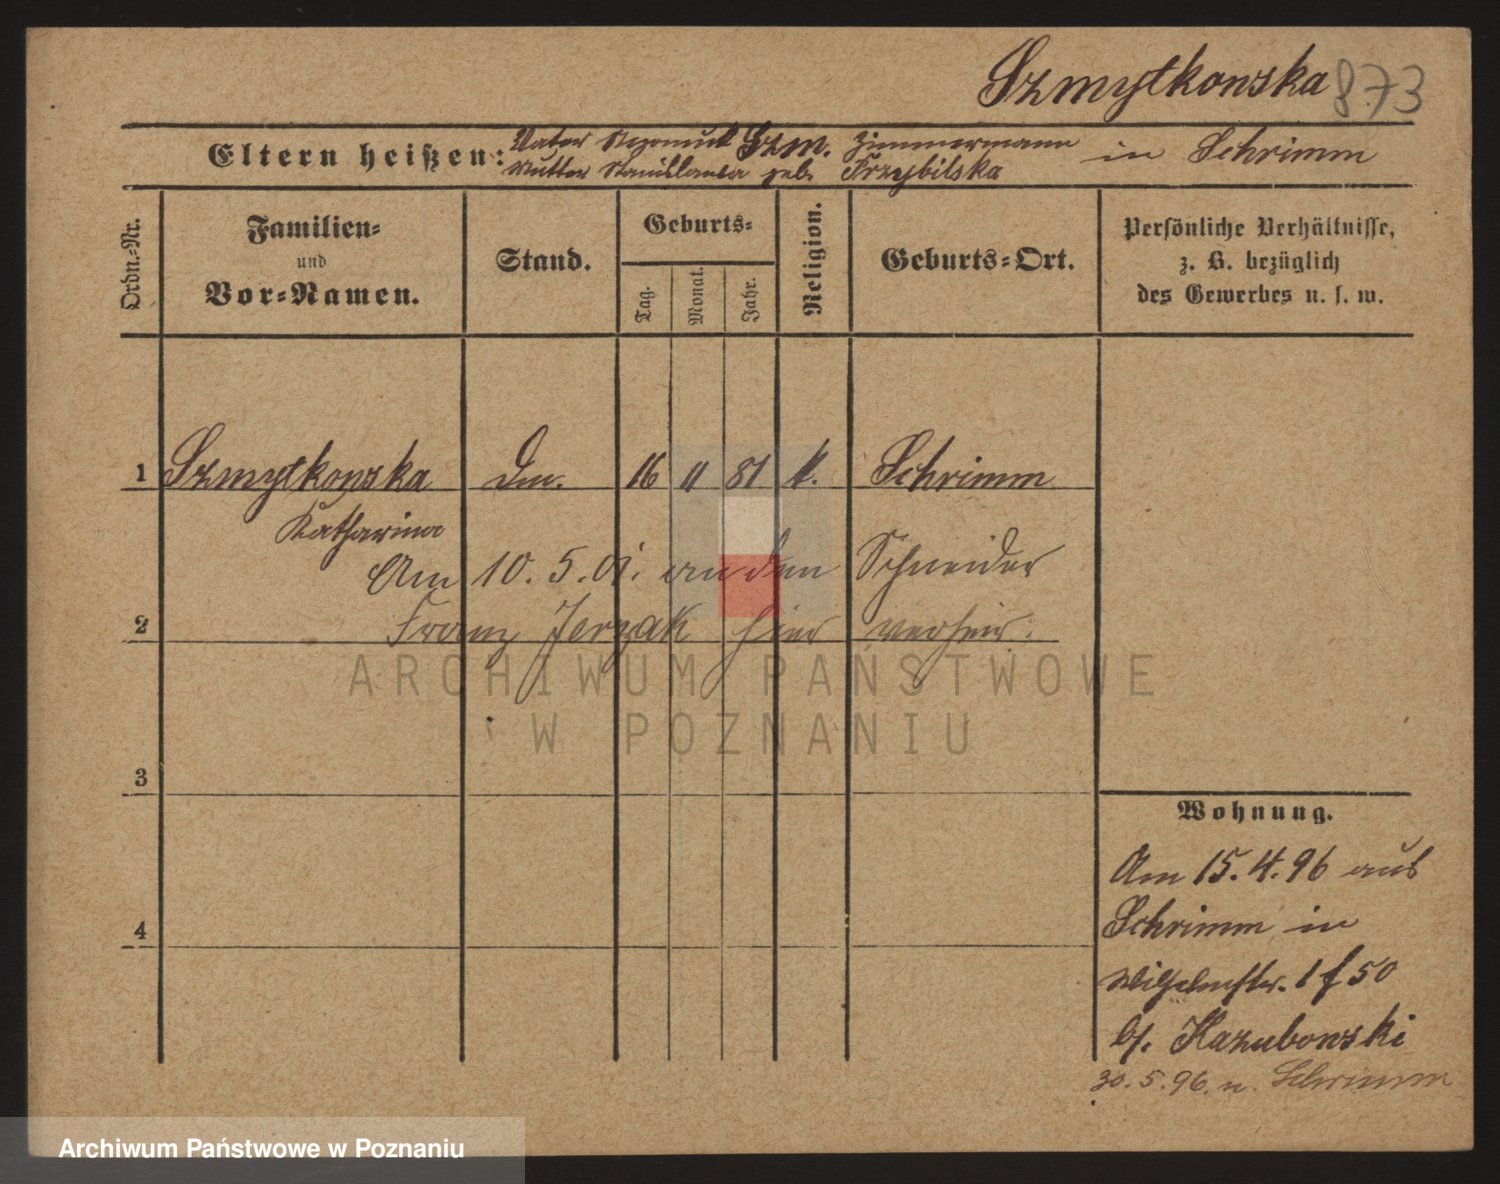 Szmytkowska 873
Eltern heißen: Vater Nepomuk Szm. Zimmermann in Schrimm
Mutter Stanislawa geb. Przybilska
Ordn.-Nr.
Familien-
und
Vor-Namen.
Stand.
Geburts-
Tag.
Monat.
Jahr.
Religion.
Geburts-Ort.
Persönliche Verhältnisse,
z. B. bezüglich
des Gewerbes u. s. w.
1 Szmytkowska 16 11 81 k. Schrimm
Katharina
Am 10. 5. 01. an den Schneider
2 Franz Jerzak hier verheir.
ARCHIWUM PAŃSTWOWE
W POZNANIU
3
4
Wohnung.
Am 15. 4. 96 aus
Schrimm in
Wilhelmstr. 50
b/. Kazubowski
30. 5. 96. n. Schrimm
Archiwum Państwowe w Poznaniu